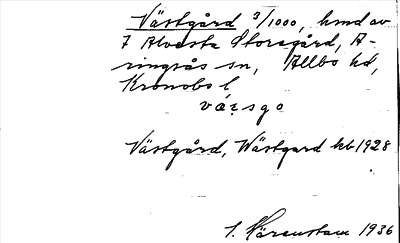 Västgård 3/1000, hmd av
7 Alvesta Storegård, A-
ringsås sn, Allbo hd,
Kronobo l,
vásgo
Västgård, Wästgard kb 1928
S. Härenstam 1936